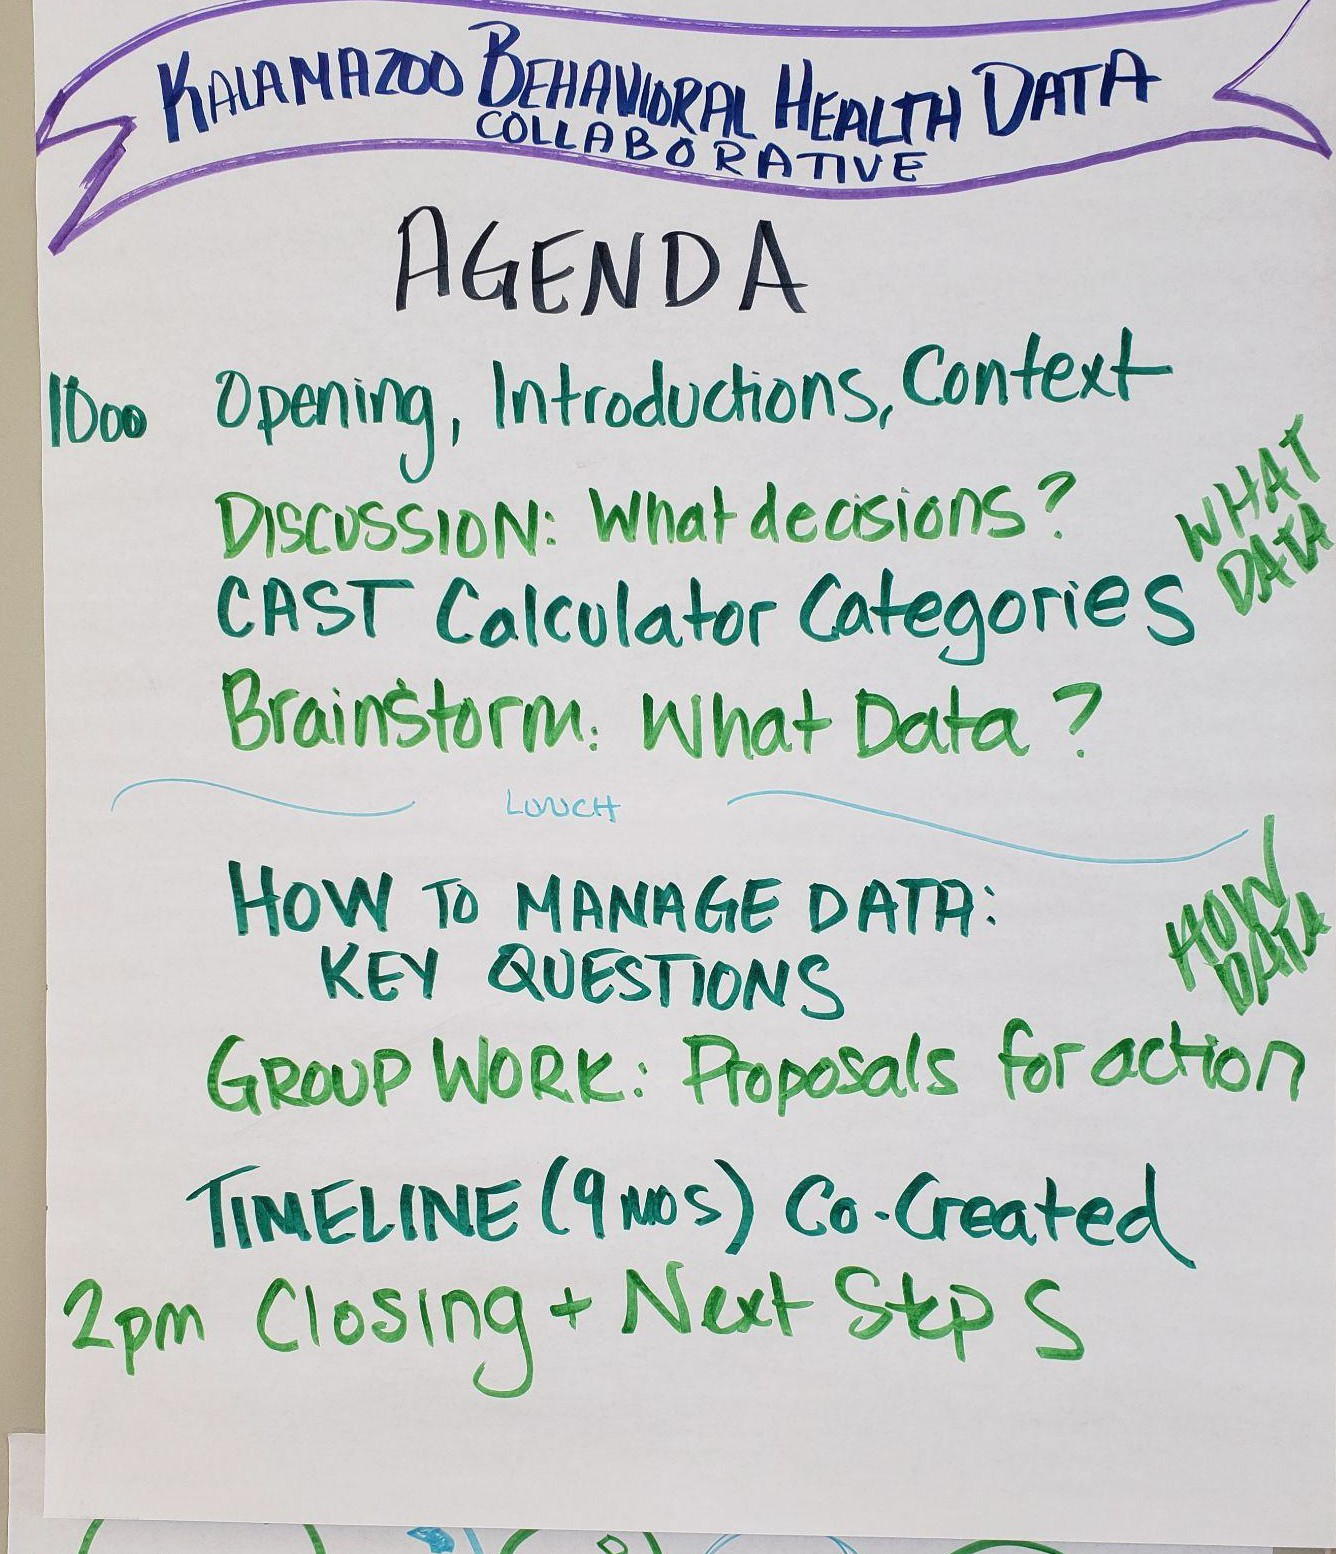 KALAMAZOO BEHAVIORAL HEALTH DATA
COLLABORATIVE
AGENDA
1000 Opening, Introductions, Context
DISCUSSION: What decisions?
WHAT
DATA
CAST Calculator Categories
Brainstorm: What Data?
LUNCH
HOW TO MANAGE DATA:
KEY QUESTIONS
HOW
DATA
GROUP WORK: Proposals for action
TIMELINE (9 MOS) Co-Created
2pm Closing + Next Steps